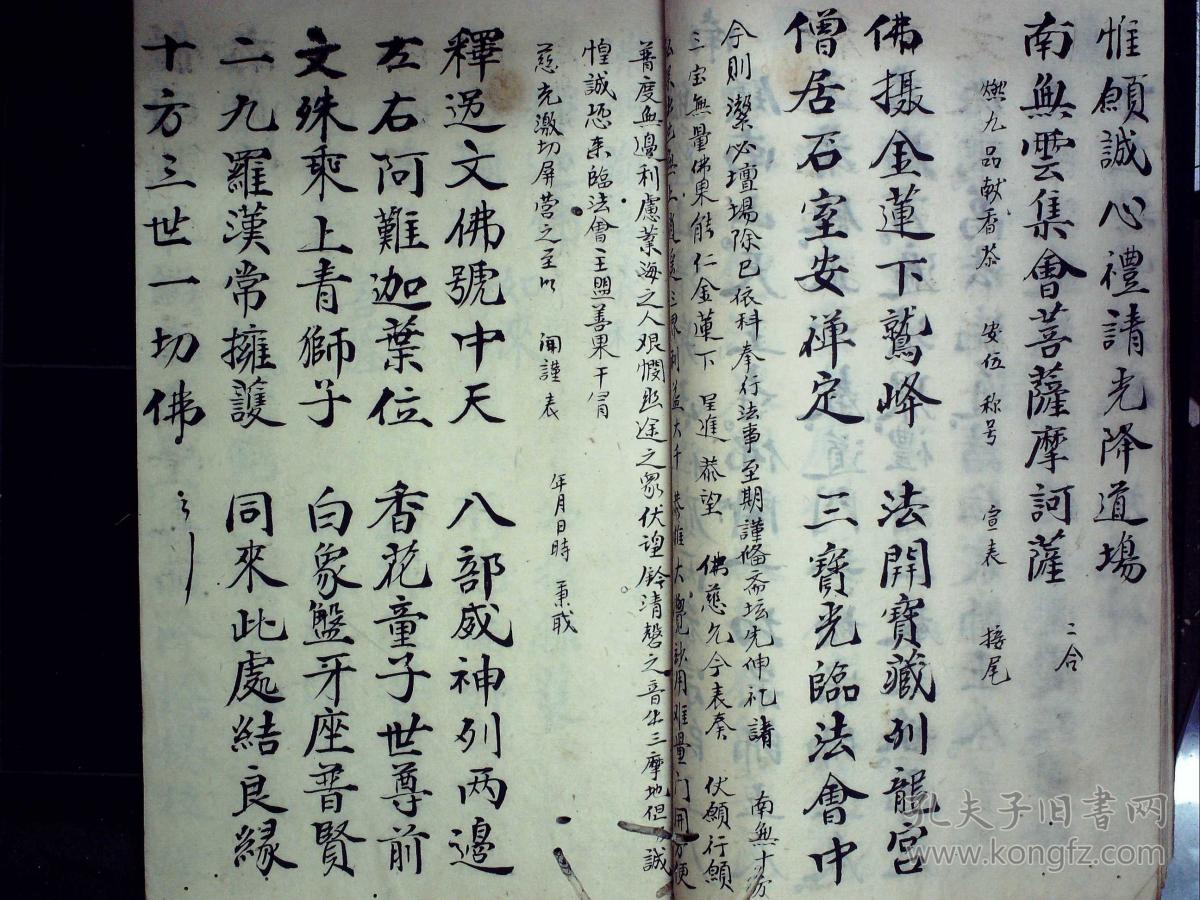 惟願誠心禮請光降道場
南無雲集會菩薩摩訶薩 二合
燃九品献香茶 安位 称号 宣表 接尾
佛摄金蓮下鷲峰 法開寶藏列龍宮
僧居石室安禅定 三寳光臨法會中
今則 潔必壇場除已依科奉行法事至期謹俻斋坛先伸礼請 南無十方
三宝無量佛果能仁金蓮下 呈進 恭望 佛慈允今表奏 伏願行願
恭惟大覺 用难量门開方便
普度無邉利慮業海之人艰憫 途之众伏望鈴清磬之音生三摩地但 誠
惶誠恐来臨法會主盟善果干冐
慈光激切屏营之至以 闻謹表 年月日時 秉戒
釋迦文佛號中天 八部威神列两邊
左右阿難迦葉位 香花童子世尊前
文殊乘上青獅子 白象盤牙座普賢
二九羅漢常擁護 同來此處結良縁
十方三世一切佛
孔夫子旧書网
www.kongfz.com